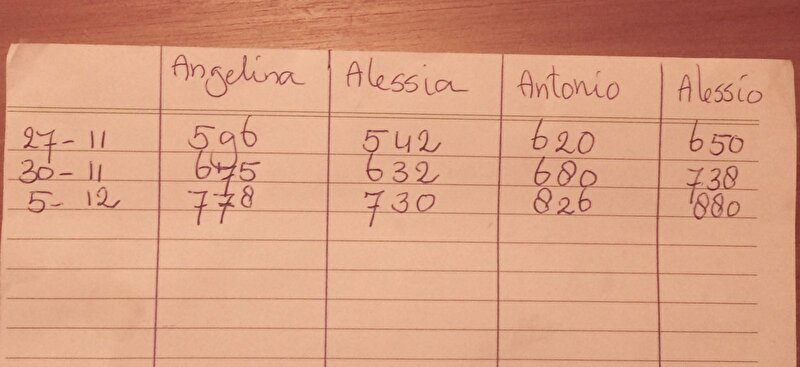 Angelina Alessia Antonio Alessio
27-11 596 542 620 650
30-11 675 632 680 738
5-12 778 730 826 880